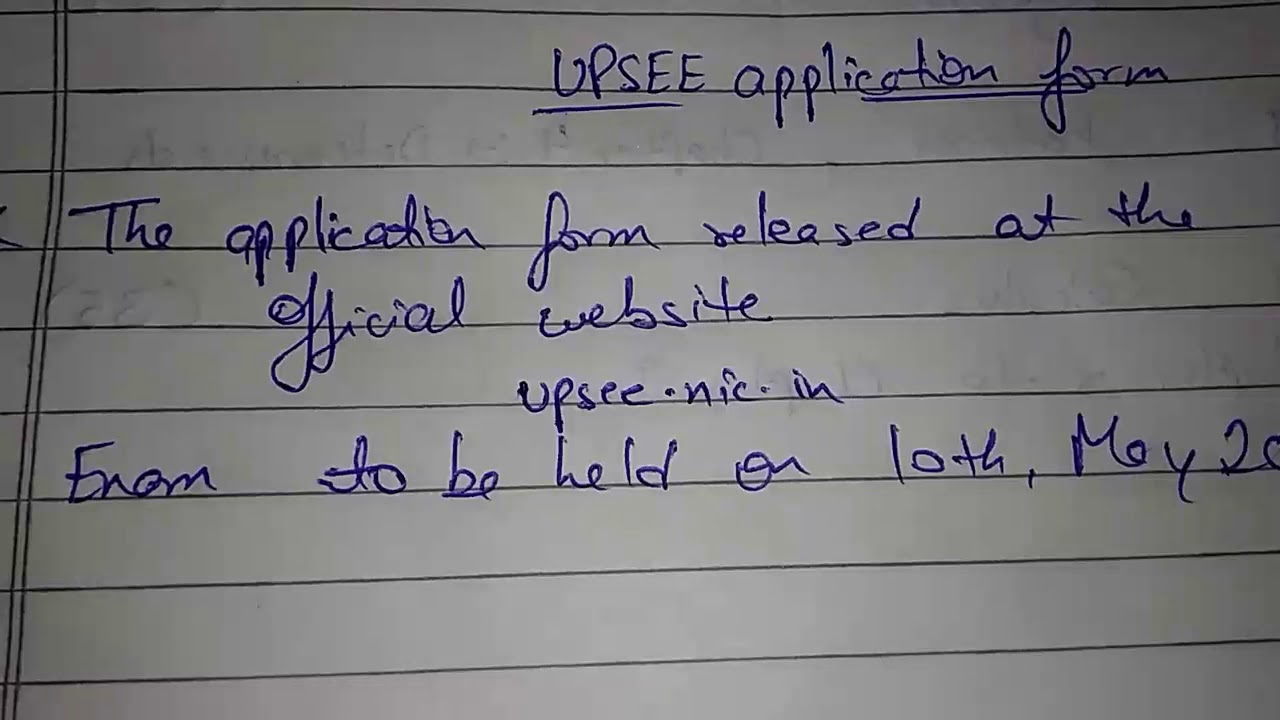 UPSEE application form
The application form released at the
official website
upsee.nic.in
Exam to be held on 10th, May 20